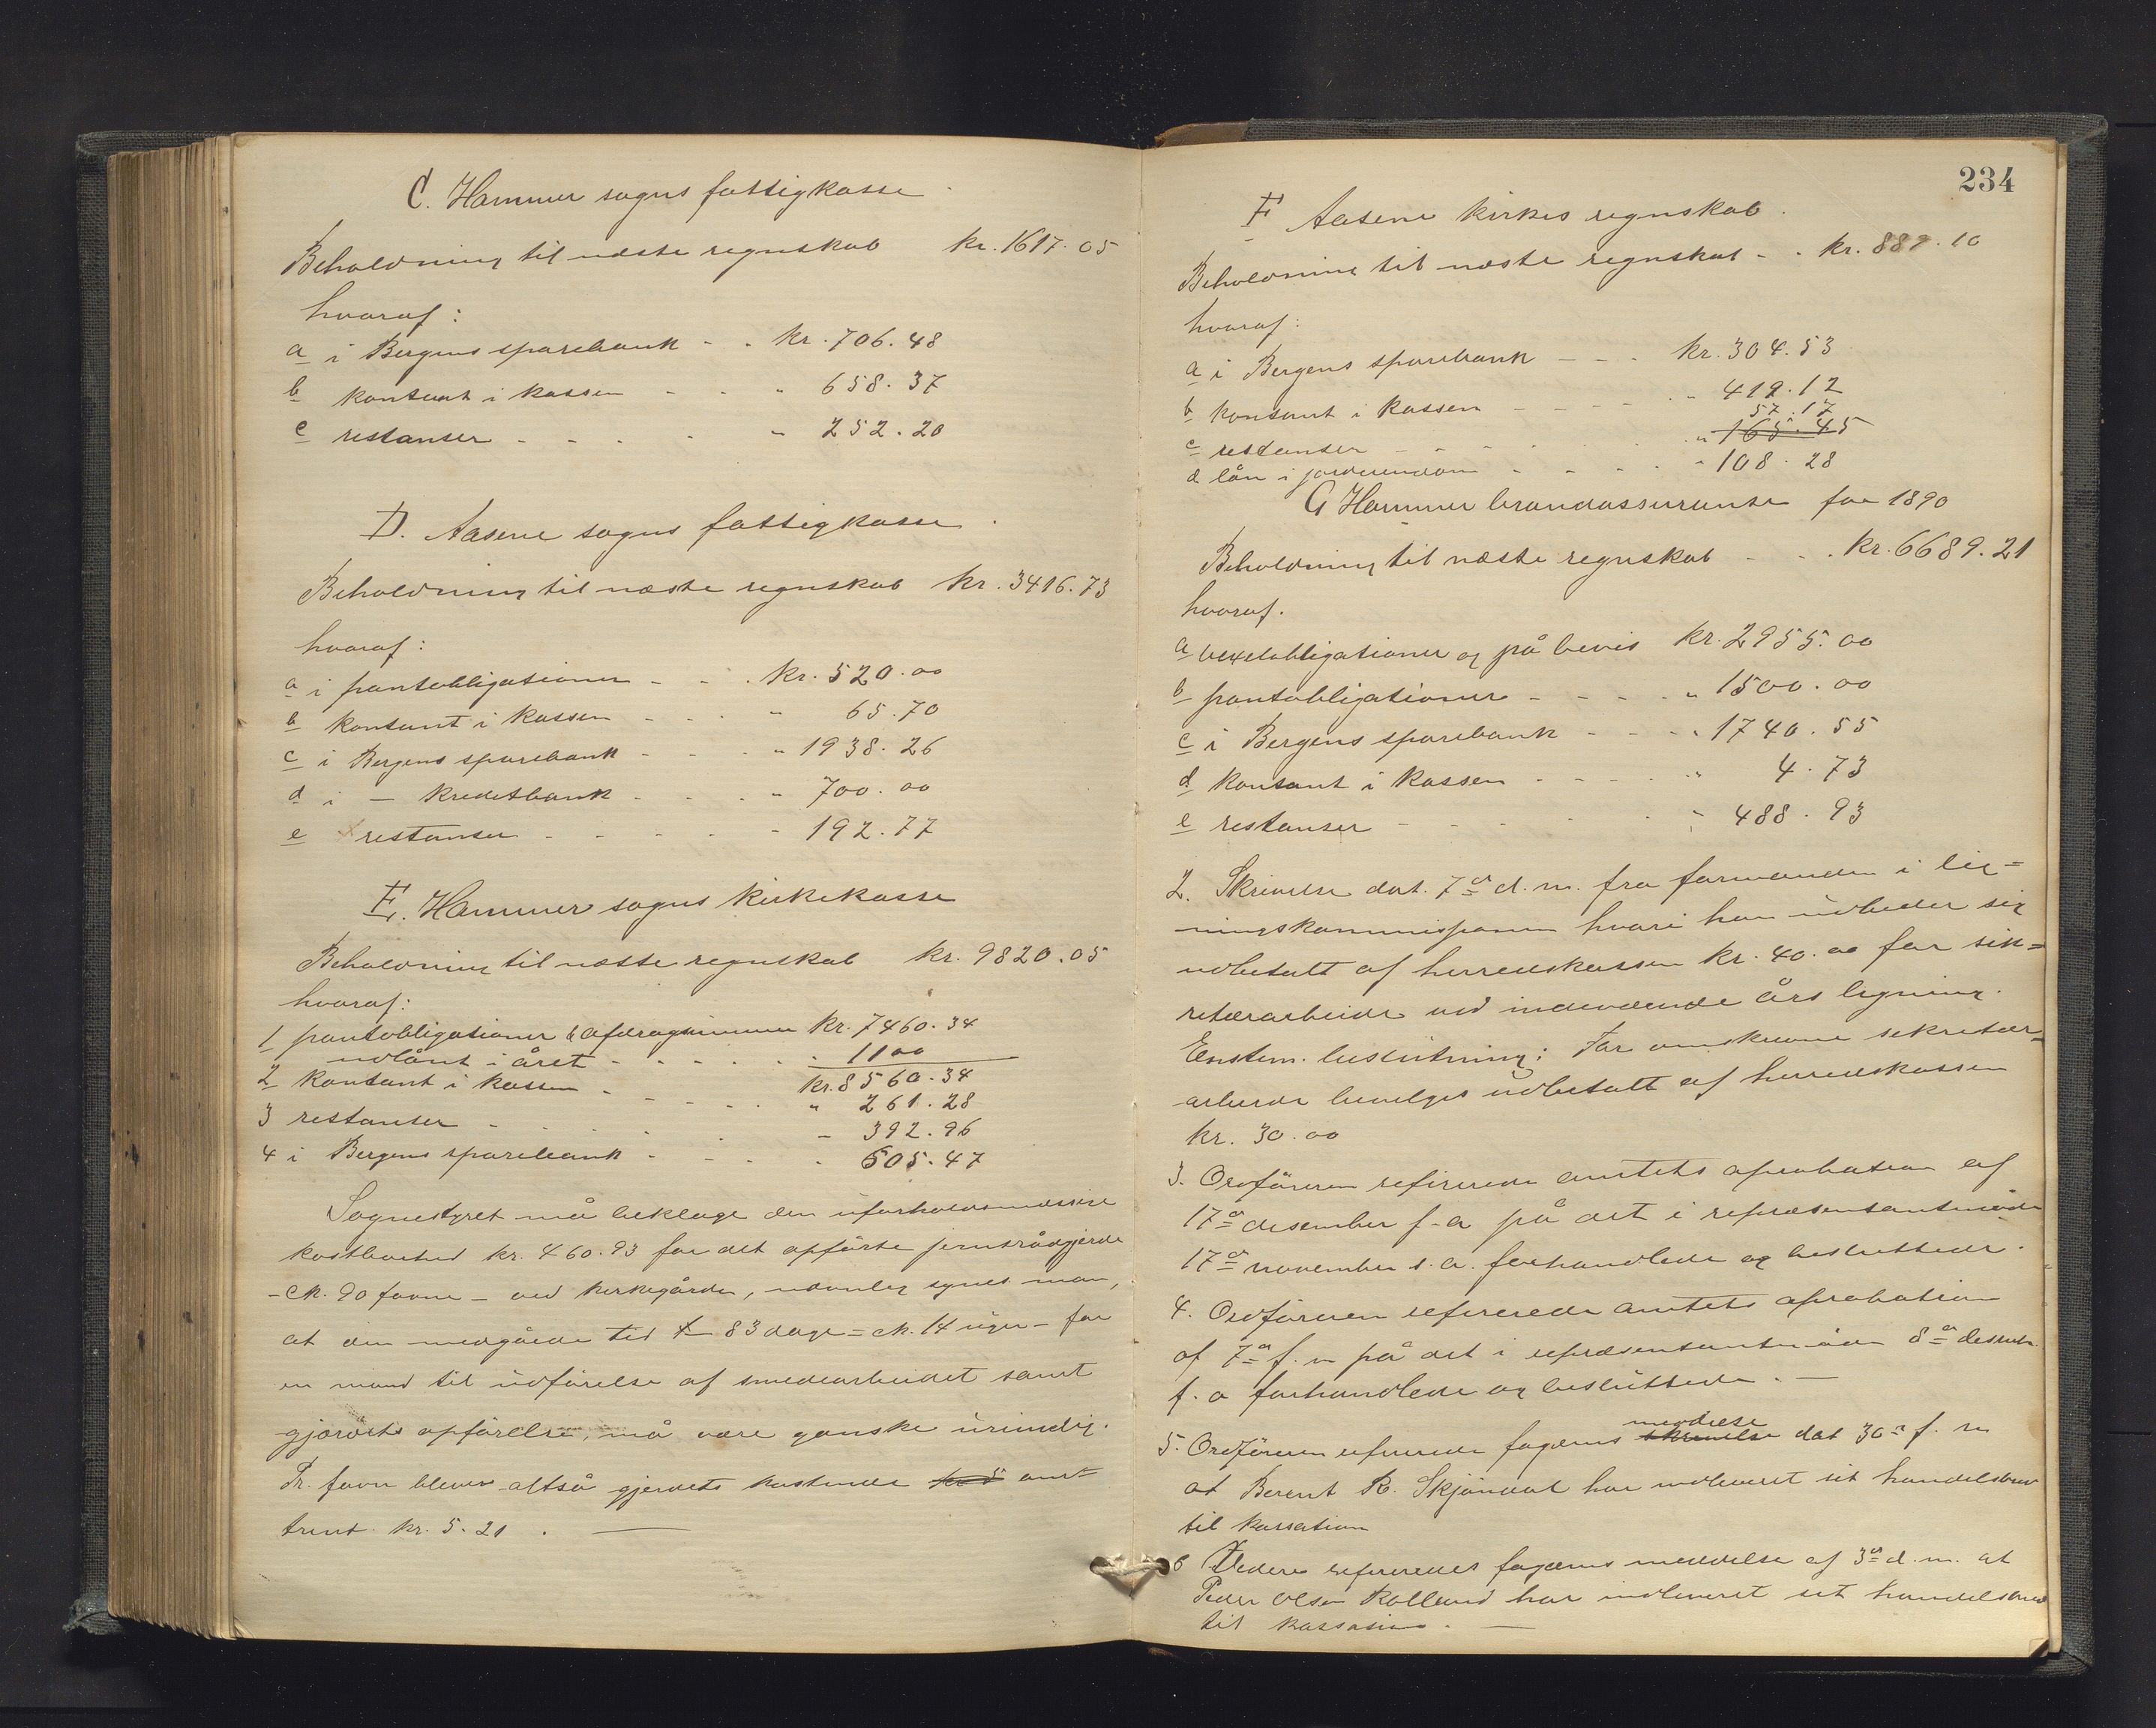 C. Hammer sogns fattigkasse
Beholdning til næste regnskab kr. 1617.05
hvoraf:
a i Bergens sparebank - - kr. 706.48
b kontant i kassen - - " 658.37
c restanser - - - - " 252.20
D. Aasene sogns fattigkasse.
Beholdning til næste regnskab kr. 3416.73
hvoraf:
a i pantobligationer - - kr. 520.00
b kontant i kassen - - - " 65.70
c i Bergens sparebank - - - " 1938.26
d i — kreditbank - - - " 700.00
e restanser - - - - - 192.77
E. Hammer sogns kirkekasse
Beholdning til næste regnskab kr. 9820.05
hvoraf:
1 pantobligationer & afdragsummer kr. 7460.34
udlånt i året - - - - - 1100
kr. 8560.34
2 kontant i kassen - - - - " 261.28
3 restanser - - - - - 392.96
4 i Bergens sparebank - - - - 605.47
Sognestyret må beklage den uforholdsmæssige
kostbarhed kr. 460.93 for det opførte jerntrådgjerde
- ck. 90 favne - ved kirkegården, nemlig synes man,
at den medgåede tid - 83 dage = ck. 14 uger - for
en mand til udførelse af smedearbeidet samt
gjærdets opførelse, må være ganske urimelig.
Pr. favn bliver altså gjerdets kostende om-
trent kr. 5.21. —
234
F Aasene kirkes regnskab.
Beholdning til næste regnskab - - kr. 889.10
hvoraf:
a i Bergens sparebank - - - kr. 304.53
b kontant i kassen - - - - - " 419.12
57.17
c restanser - - - - - " 165.45
d lån i jordeiendom - - - - " 108.28
G Hammer brandassuranse for 1890
Beholdning til næste regnskab - - . kr. 6689.21
hvoraf.
a vexelobligationer og på bevis kr. 2955.00
b pantobligationer - - - - " 1500.00
c i Bergens sparebank - - - " 1740.55
d kontant i kassen - - - - " 4.73
e restanser - - - - - " 488.93
2. Skrivelse dat. 7de d.m. fra formanden i lig=
ningskommissionen hvori han udbeder sig
udbetalt af herredskassen kr. 40.00 for sek=
retærarbeide ved indeværende års ligning.
Enstem. beslutning: For omskrevne sekretær=
arbeide bevilges udbetalt af herredskassen
kr. 30.00
3. Ordføreren refererede amtets aprobation af
17de desember f.a på det i repræsentantmøde
17de november s.a. forhandlede og besluttede.
4. Ordføreren refererede amtets aprobation
af 7de f.m på det i repræsentantmøde 8de desemb.
f.a forhandlede og besluttede. —
meddelse
5. Ordføreren refererede fogdens skrivelse dat 30te f.m
at Berent R. Skjøndal har indleveret sit handelsbrev
til kassation
6 Videre refereredes fogdens meddelelse af 3de d.m. at
Peder Olsen Rolland har indleveret sit handelsbrev
til kassasion. —